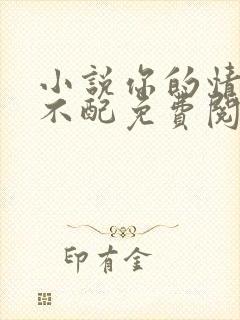 小說你的情
不配免費閱
印有金